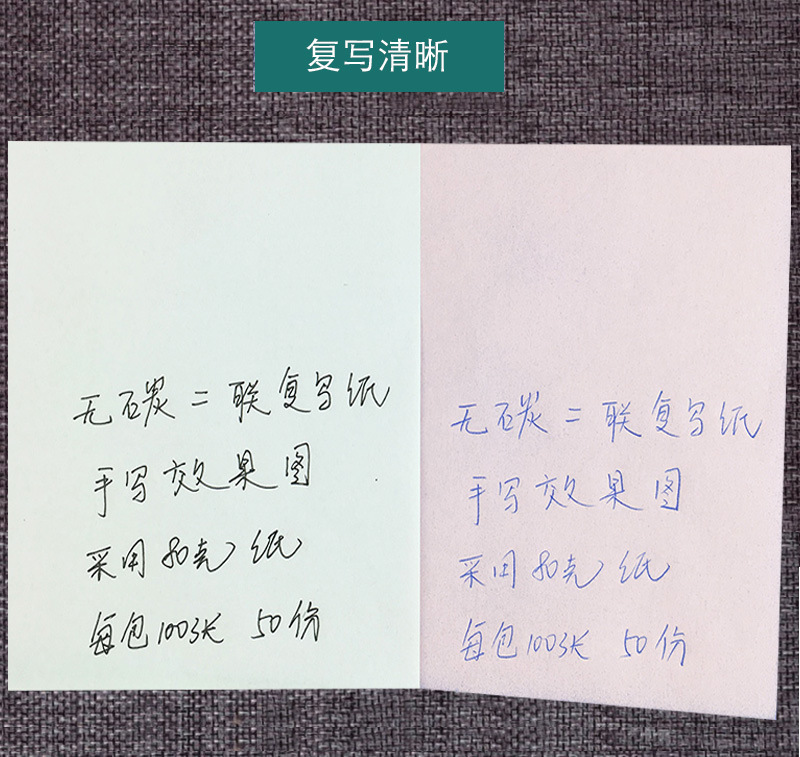 复写清晰
无碳二联复写纸
手写效果图
采用80克纸
每包100张 50份
无碳二联复写纸
手写效果图
采用80克纸
每包100张 50份